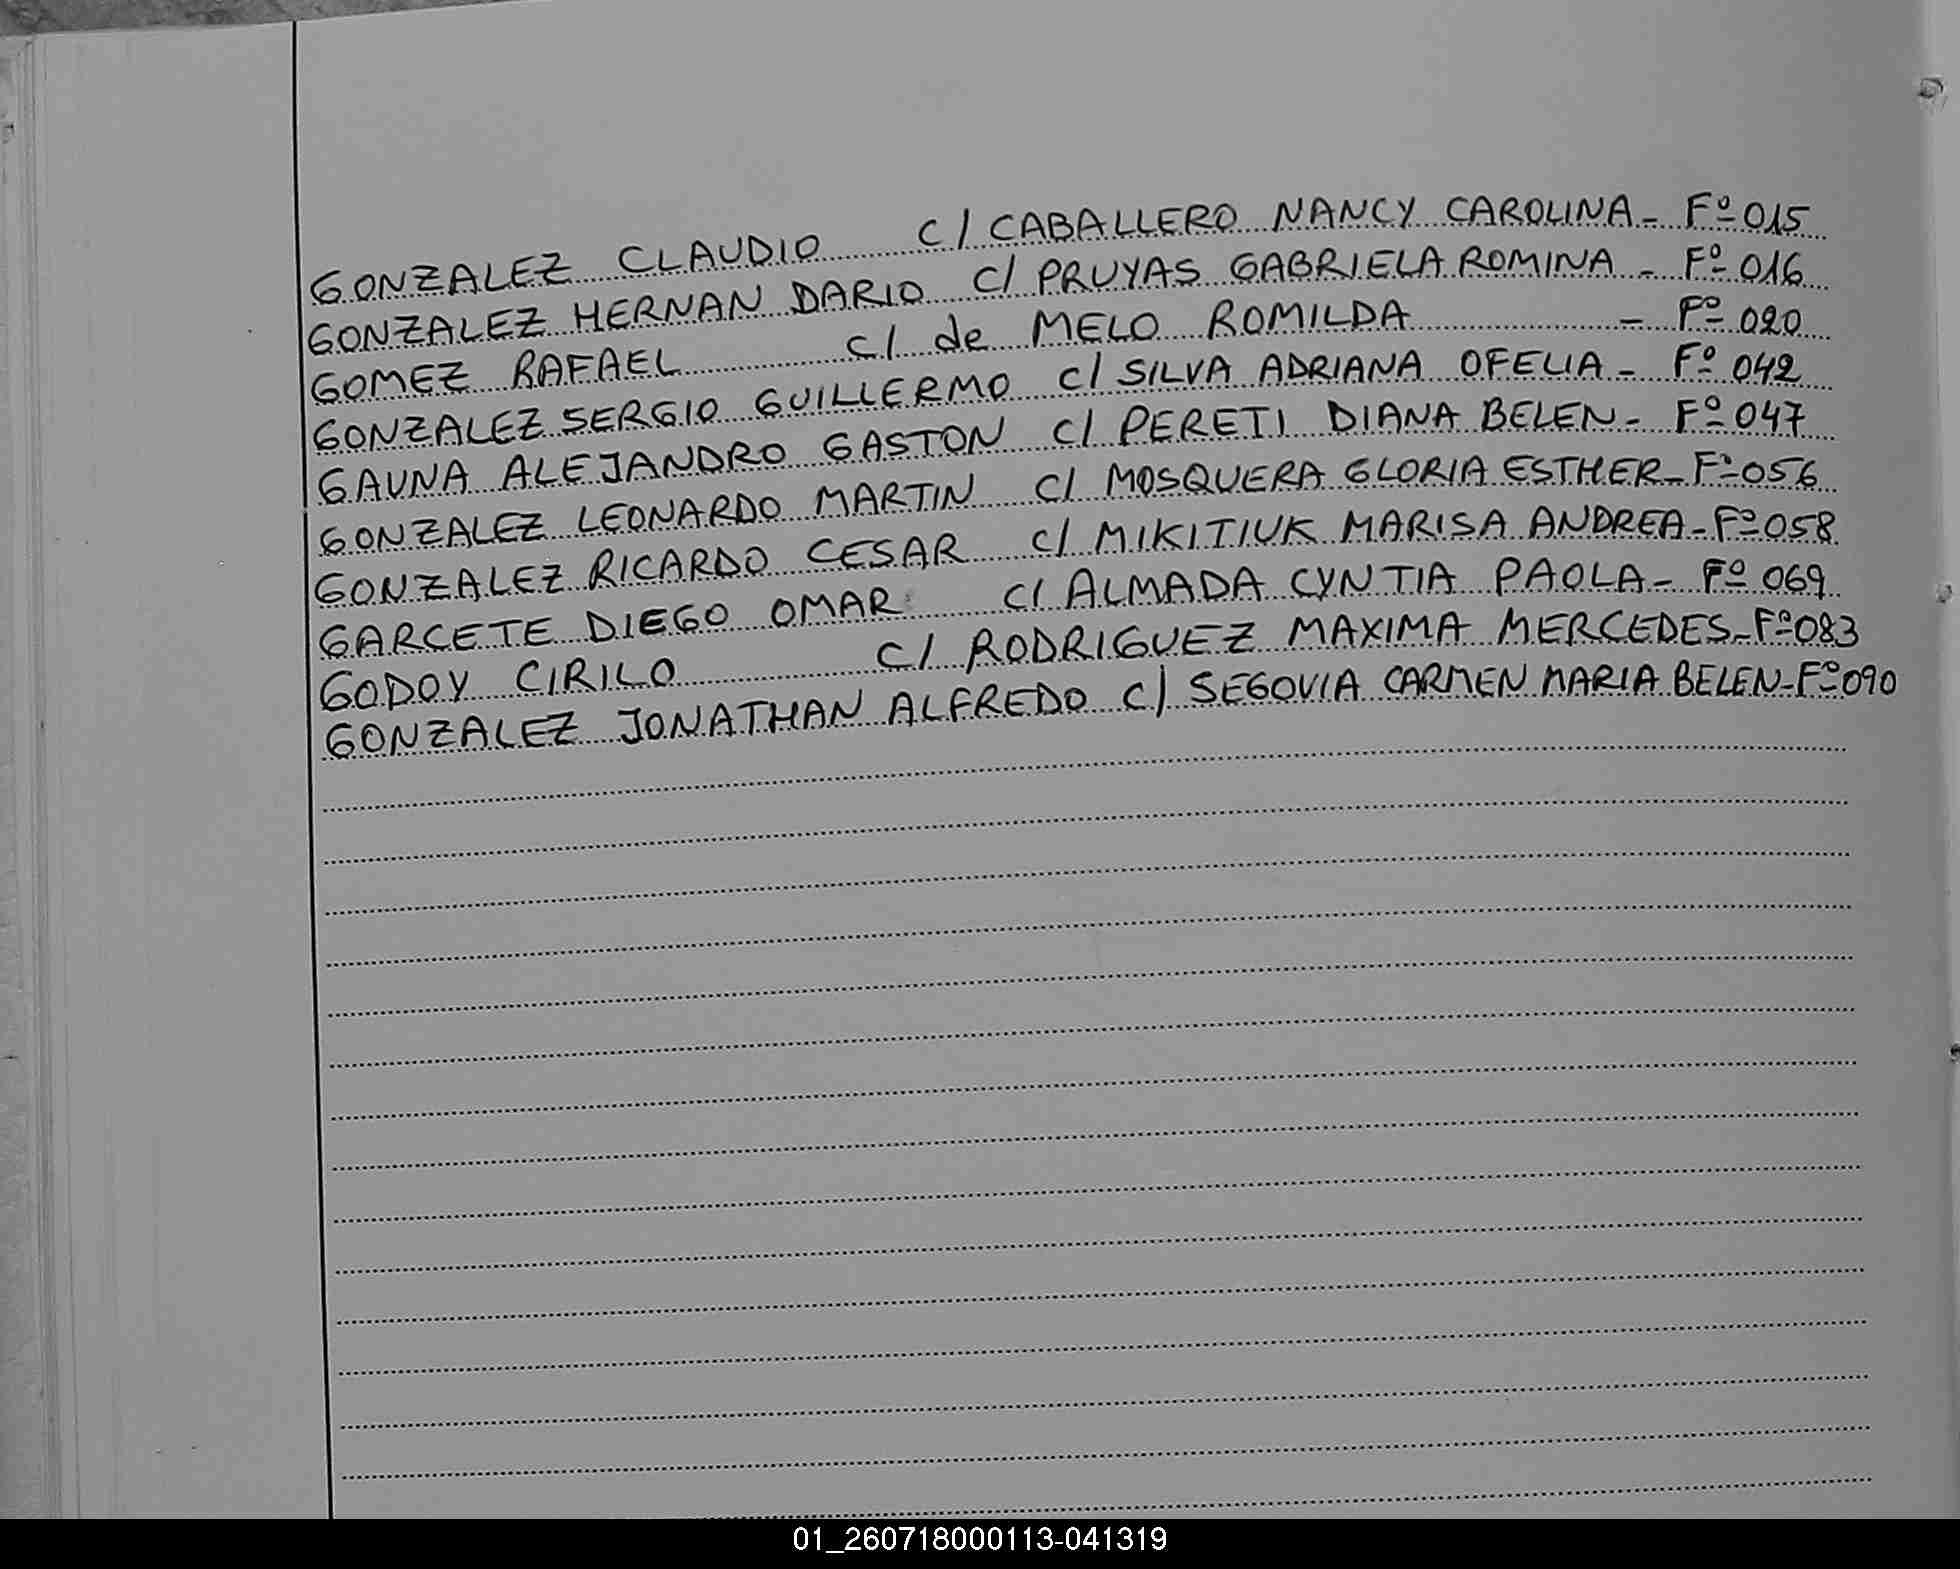 GONZALEZ CLAUDIO c/ CABALLERO NANCY CAROLINA - Fº 015
GONZALEZ HERNAN DARIO c/ PRUYAS GABRIELA ROMINA - Fº 016
GOMEZ RAFAEL c/ de MELO ROMILDA - Fº 020
GONZALEZ SERGIO GUILLERMO c/ SILVA ADRIANA OFELIA - Fº 042
GAUNA ALEJANDRO GASTON c/ PERETI DIANA BELEN - Fº 047
GONZALEZ LEONARDO MARTIN c/ MOSQUERA GLORIA ESTHER - Fº 056
GONZALEZ RICARDO CESAR c/ MIKITIUK MARISA ANDREA - Fº 058
GARCETE DIEGO OMAR c/ ALMADA CYNTIA PAOLA - Fº 069
GODOY CIRILO c/ RODRIGUEZ MAXIMA MERCEDES - Fº 083
GONZALEZ JONATHAN ALFREDO c/ SEGOVIA CARMEN MARIA BELEN - Fº 090
01_260718000113-041319